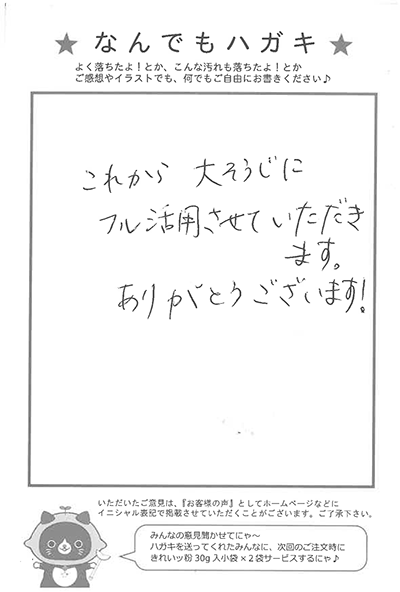 ★ なんでもハガキ ★
よく落ちたよ！とか、こんな汚れも落ちたよ！とか
ご感想やイラストでも、何でもご自由にお書きください♪
これから 大そうじに
フル活用させていただき
ます。
ありがとうございます!
いただいたご意見は、『お客様の声』としてホームページなどに
イニシャル表記で掲載させていただくことがございます。ご了承下さい。
みんなの意見聞かせてにゃ～
ハガキを送ってくれたみんなに、次回のご注文時に
きれいッ粉 30g 入小袋×2袋サービスするにゃ♪